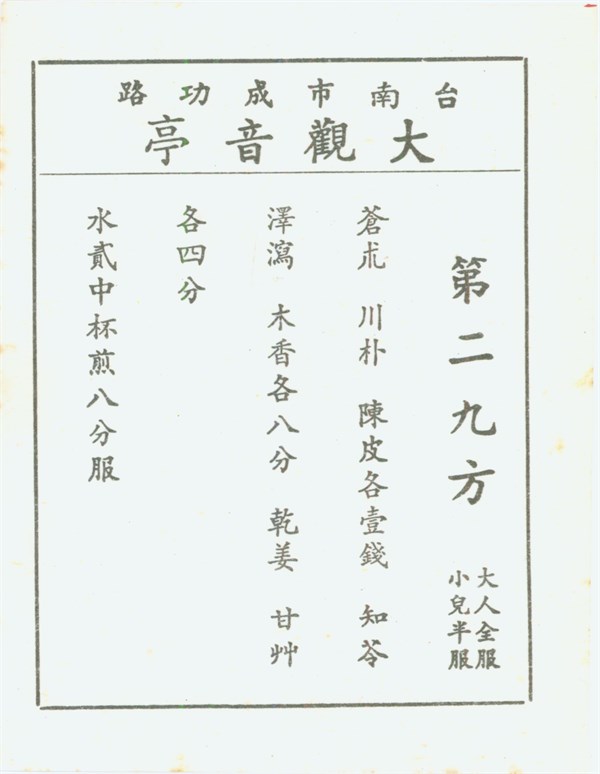 台南市成功路
大觀音亭
第二九方 大人全服
小兒半服
蒼朮 川朴 陳皮各壹錢 知苓
澤瀉 木香各八分 乾姜 甘艸
各四分
水貳中杯煎八分服